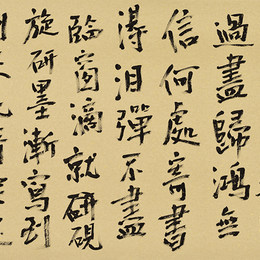 過盡歸鴻無
信何處寄書
得泪彈不盡
臨窗滴就研硯
旋研墨漸寫到